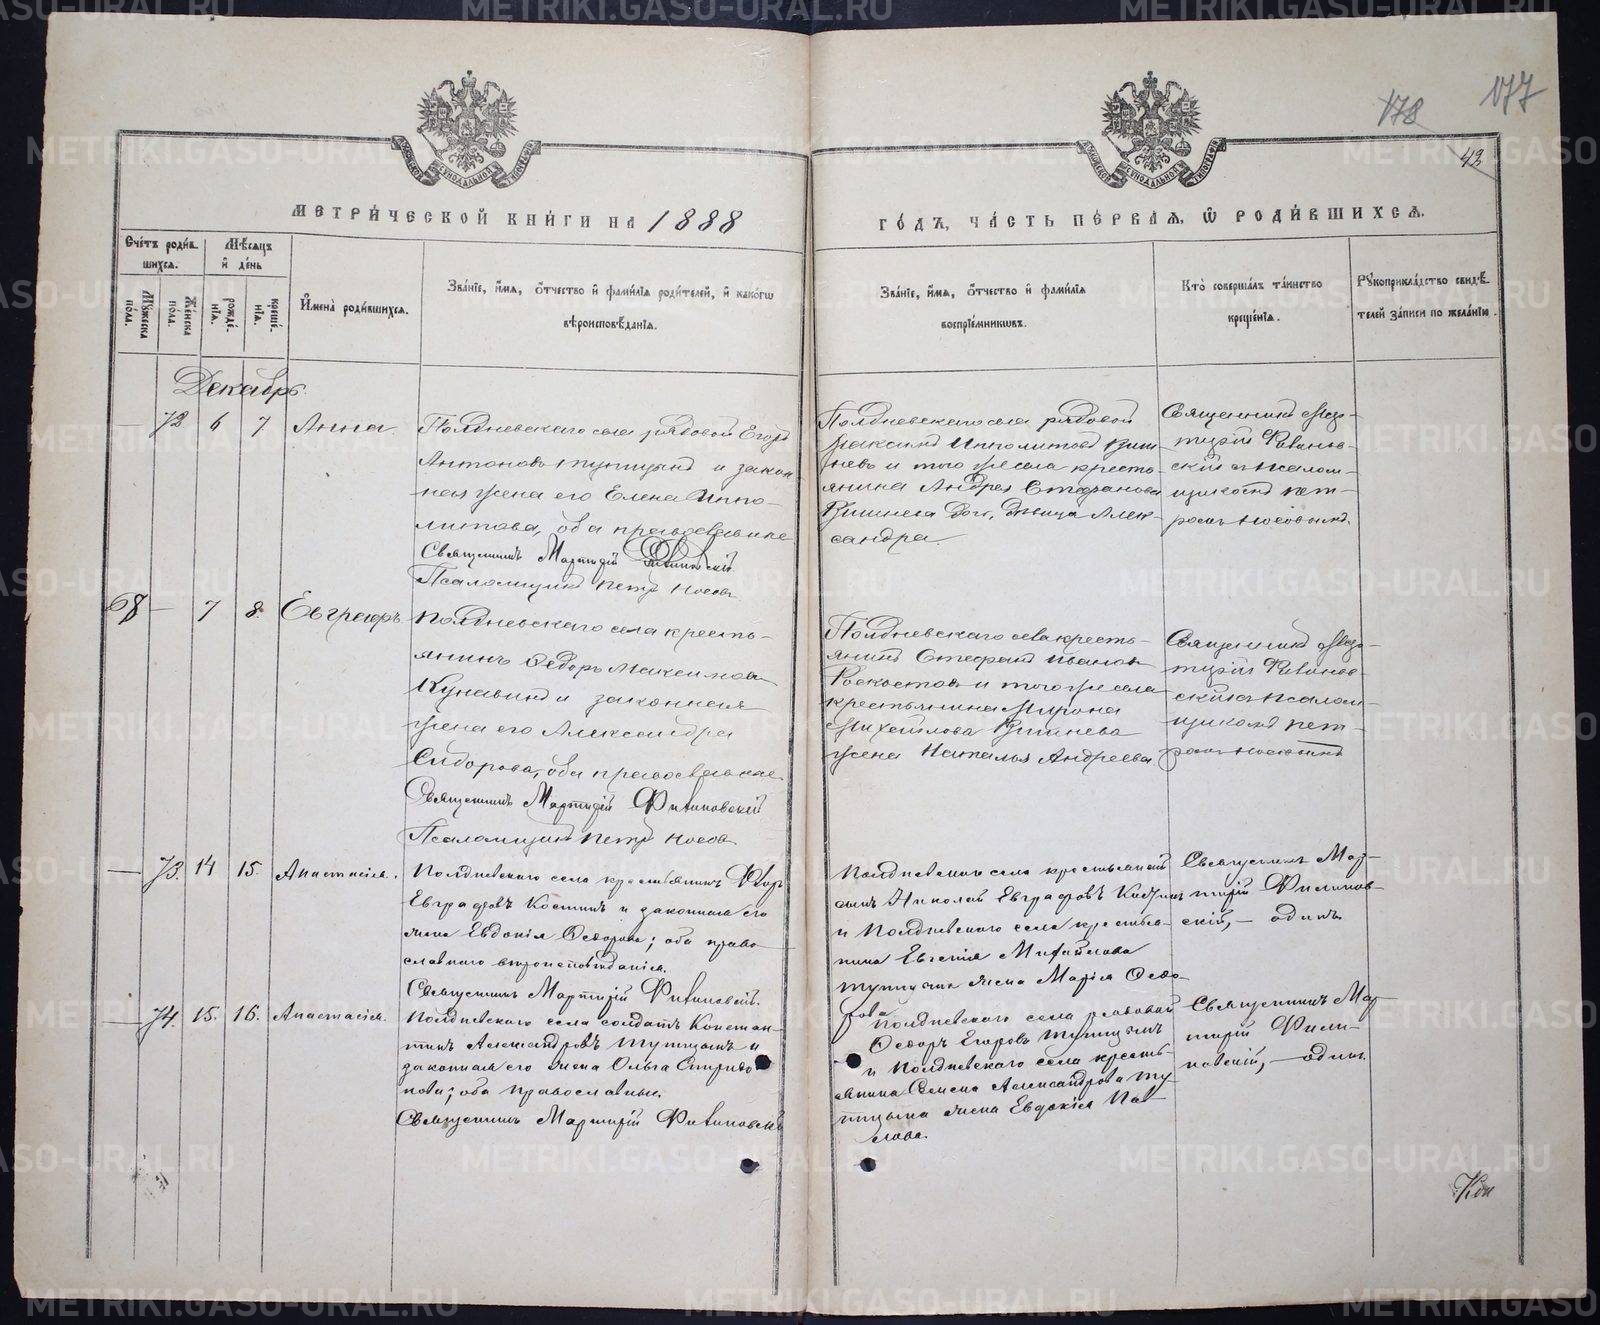 178
177
42
МЕТРИ́ЧЕСКОЙ КНИ́ГИ НА 1888
ГО́ДЪ, ЧА́СТЬ ПЕ́РВАЯ, Ѡ РОДИ́ВШИХСЯ.
Сче́тъ роди́вшихся.
Му́жеска по́ла.
Же́нска по́ла.
Мѣ́сяцъ и́ де́нь
рожде́нїя.
креще́нїя.
И́мена̀ роди́вшихся.
Зва́нїе, и́мя, ѻ́тчество и́ фами́лїя роди́телей, и́ како́гѡ вѣроисповѣ́данїя.
Зва́нїе, и́мя, ѻ́тчество и́ фами́лїя воспрїе́мникѡвъ.
Кто̀ соверша́лъ та́инство креще́нїя.
Рꙋкоприкла́дство свидѣ́телей за́писи по жела́нїю.
Декабрь
— 72 6 7 Анна
Полдневскаго села рядовой Егоръ
Антоновъ Тупицынъ и закон
ная жена его Елена Иппо-
литова, оба православные
Священникъ Мартирій
Псаломщикъ Петръ Носовъ
Полдневскаго села рядовой
Ипполитовъ Виш
невъ и того же села кресть-
янина Андрея Стефанова
Вишнева Доч, Дѣвица Алек-
сандра
Священникъ Мар-
тирій
скій съ псалом-
щикомъ Пет-
ромъ Носовымъ
68 — 7 8. Евграфъ
Полдневскаго села кресть-
янинъ Ѳедоръ Максимовъ
Кунавинъ и законная
жена его Александра
Сидорова, оба православные
Священникъ Мартирій
Псаломщикъ Петръ Носовъ
Полдневскаго села кресть-
янинъ Стефанъ Ивановъ
и того же села
крестьянина Мирона
Михайлова Вишнева
жена Наталья Андреева
Священникъ Мар-
тирій
скій съ псалом-
щикомъ Пет-
ромъ Носовымъ
— 73. 14 15. Анастасія.
Полдневскаго села крестьянинъ
Евграфовъ Костинъ и законная его
жена Евдокія Ѳедорова; оба право-
славнаго вѣроисповѣданія.
Священникъ Мартирій
Полдневскаго села крестьянскій
сынъ Николай Евграфовъ
и Полдневскаго села крестья-
нина Евгенія Михайлова
Тупицына жена Марія Ѳедо-
рова.
Священникъ Мар-
тирій
скій, — одинъ
— 74. 15. 16. Анастасія.
Полдневскаго села солдатъ Констан-
тинъ Александровъ Тупицынъ и
законная его жена Ольга Спиридо
нова; оба православные.
Священникъ Мартирій
Полдневскаго села рядовой
Ѳедоръ Егоровъ Тупицынъ
и Полдневскаго села кресть-
янина Семена Александрова Ту-
пицына жена Евдокія Пав-
лова.
Священникъ Мар-
тирій
одинъ.